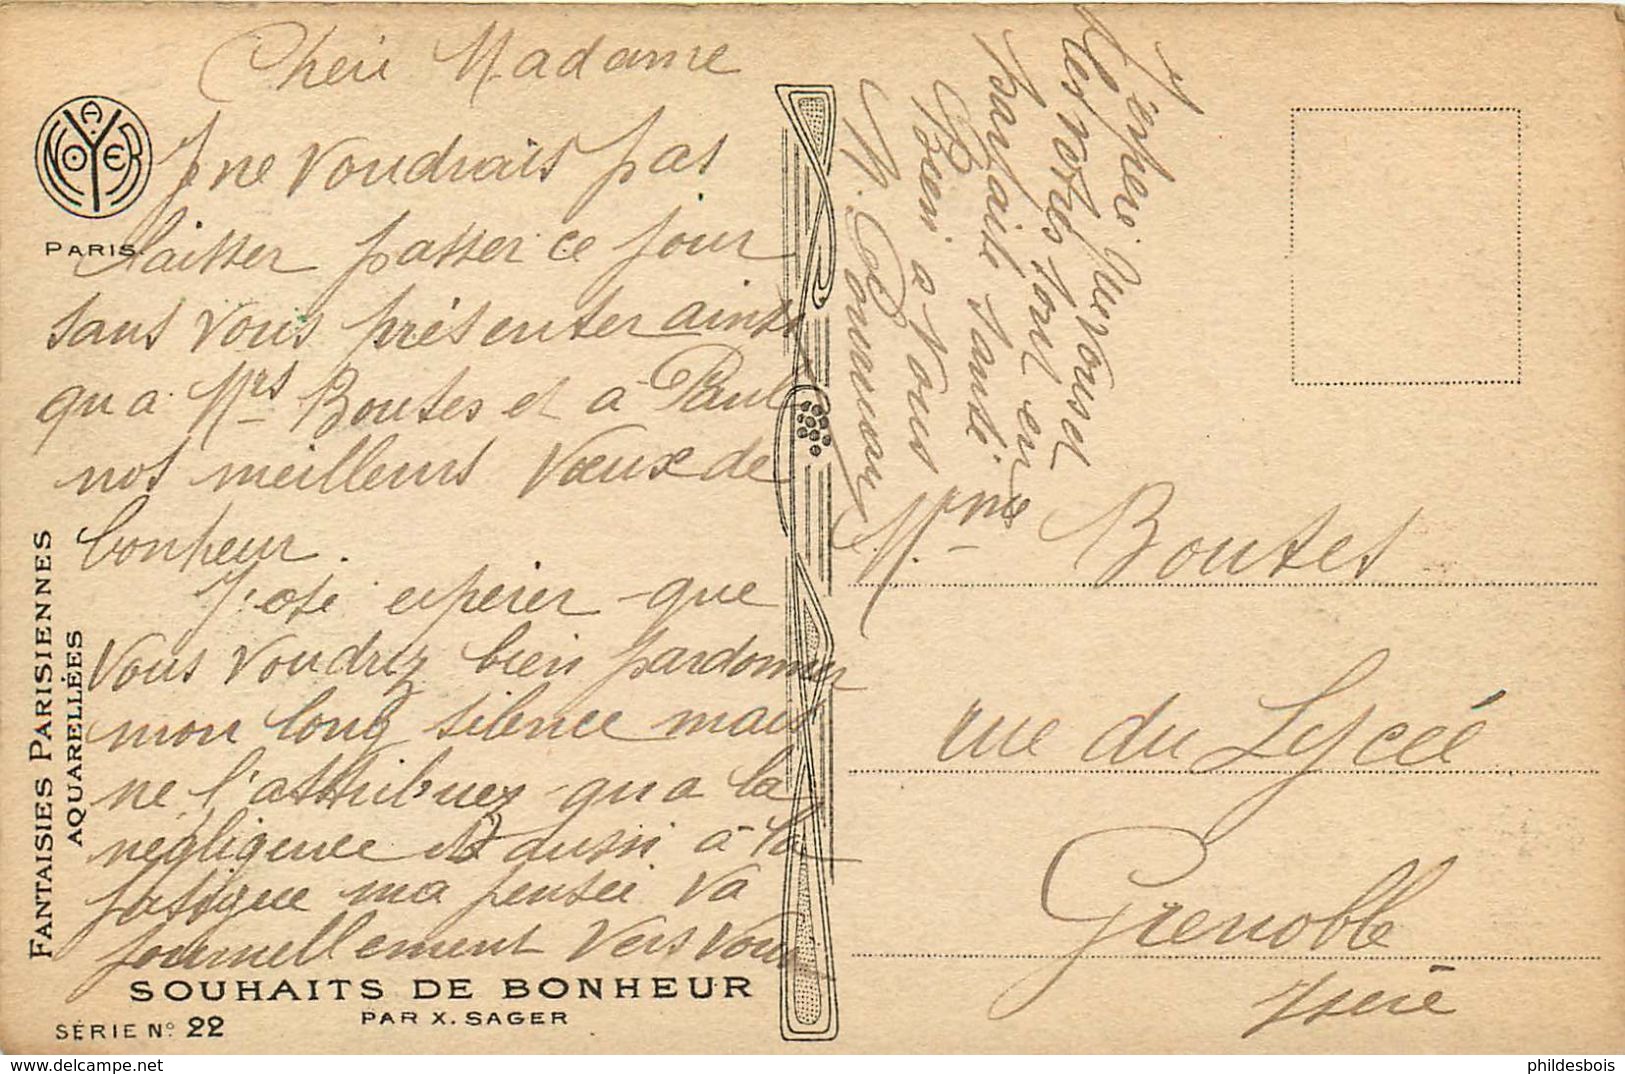 Chère Madame
J ne voudrais pas
laisser passer ce jour
sans vous présenter ainsi
qu a Mrs Boutes et à Paul
nos meilleurs vœux de
bonheur.
J'ose espérer que
vous voudrez bien pardonner
mon long silence mais
ne l'attribuez qu a la
négligence et aussi à la
fatigue ma pensée va
journellement vers vous
J'espère que vous et
les votres sont en
parfaite santé.
Bien à vous
M.
Mme Boutes
rue du Lycée
Grenoble
Isère
A NOYER
PARIS
FANTAISIES PARISIENNES
AQUARELLÉES
SOUHAITS DE BONHEUR
PAR X. SAGER
SÉRIE No 22
www.delcampe.net
phildesbois